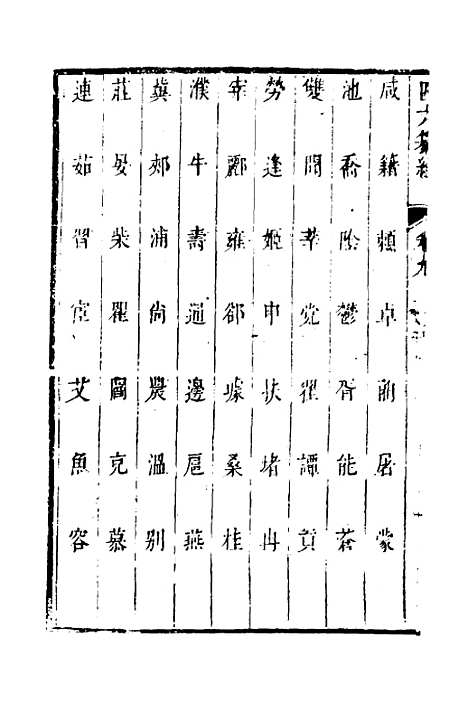 咸籍賴卓藺屠蒙
池喬陰鬱胥能蒼
雙聞莘党翟譚貢
勞逄姬申扶堵冉
宰酈雍郤璩桑桂
濮牛壽通邊扈燕
冀郟浦尚農溫別
莊晏柴瞿閻充慕
連茹習宦艾魚容
四六
卷九